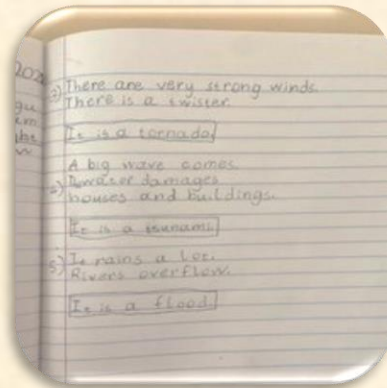 202
gu
em
ght
w
2) There are very strong winds.
There is a twister.
It is a tornado.
A big wave comes.
water damages
houses and buildings.
It is a tsunami.
5) It rains a lot.
Rivers overflow.
It is a flood.